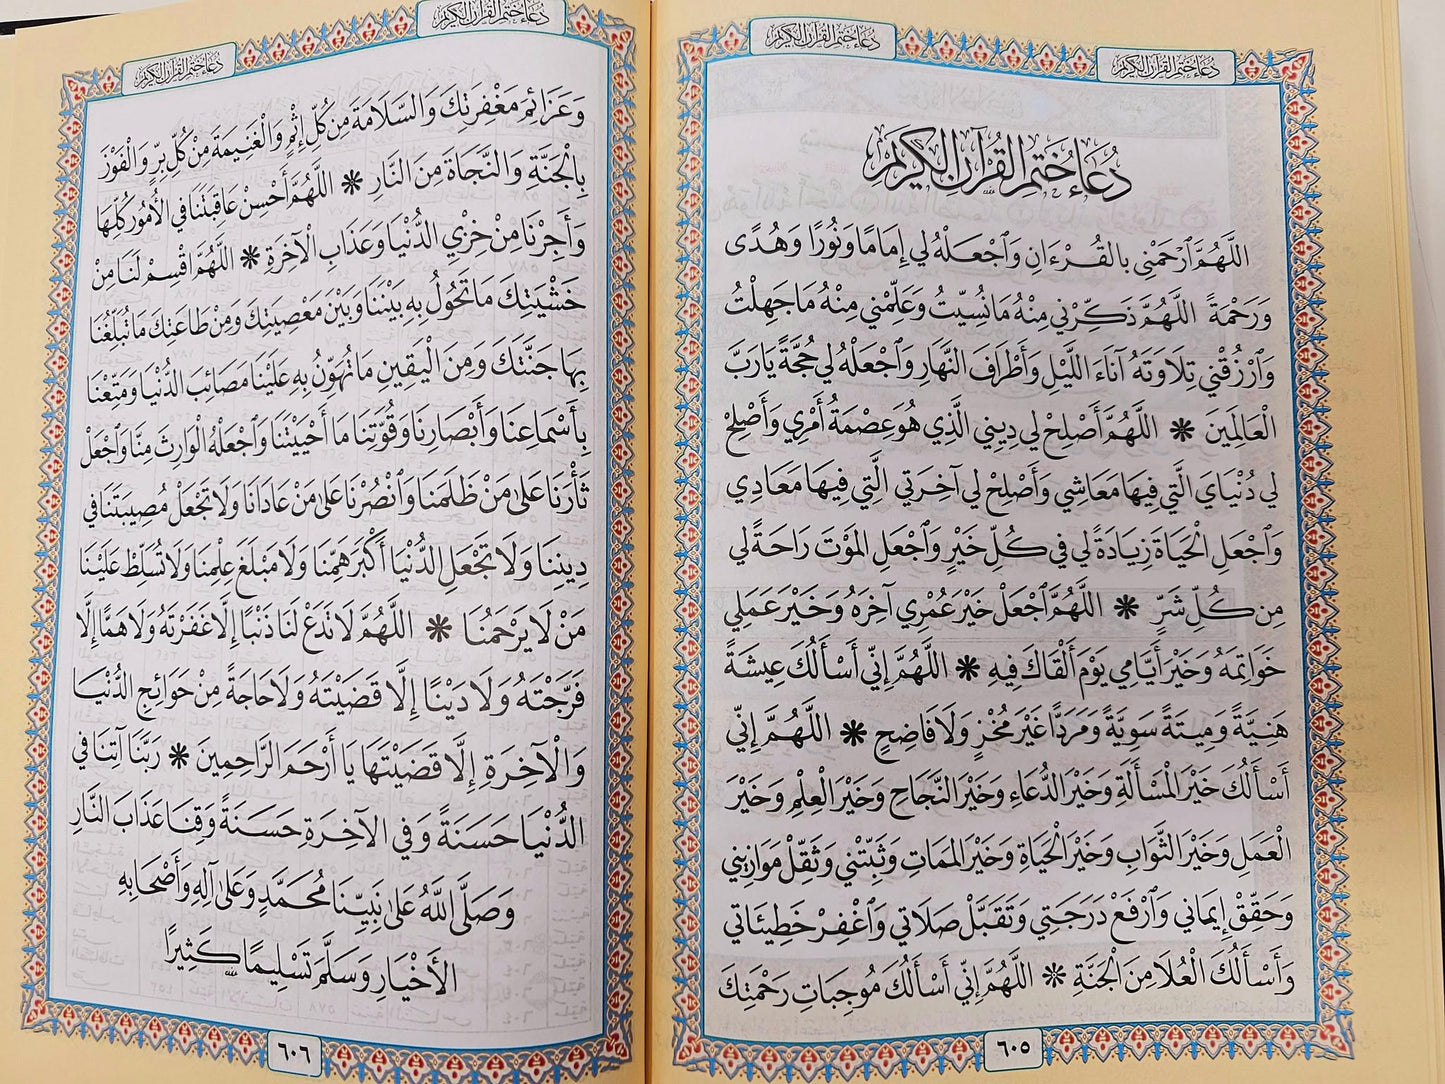 دُعَاءُ خَتْمِ الْقُرْآنِ الْكَرِيمِ
دُعَاءُ خَتْمِ الْقُرْآنِ الْكَرِيمِ
دُعَاءُ خَتْمِ الْقُرْآنِ الْكَرِيمِ
اللَّهُمَّ ٱرْحَمْنِي بِالقُرْءَانِ وَٱجْعَلْهُ لِي إِمَامًا وَنُورًا وَهُدًى
وَرَحْمَةً اللَّهُمَّ ذَكِّرْنِي مِنْهُ مَا نَسِيتُ وَعَلِّمْنِي مِنْهُ مَا جَهِلْتُ
وَٱرْزُقْنِي تِلَاوَتَهُ آنَاءَ اللَّيْلِ وَأَطْرَافَ النَّهَارِ وَٱجْعَلْهُ لِي حُجَّةً يَا رَبَّ
الْعَالَمِينَ * اللَّهُمَّ أَصْلِحْ لِي دِينِي الَّذِي هُوَ عِصْمَةُ أَمْرِي وَأَصْلِحْ
لِي دُنْيَايَ الَّتِي فِيهَا مَعَاشِي وَأَصْلِحْ لِي آخِرَتِي الَّتِي فِيهَا مَعَادِي
وَٱجْعَلِ الْحَيَاةَ زِيَادَةً لِي فِي كُلِّ خَيْرٍ وَٱجْعَلِ الْمَوْتَ رَاحَةً لِي
مِن كُلِّ شَرٍّ * اللَّهُمَّ ٱجْعَلْ خَيْرَ عُمْرِي آخِرَهُ وَخَيْرَ عَمَلِي
خَوَاتِمَهُ وَخَيْرَ أَيَّامِي يَوْمَ أَلْقَاكَ فِيهِ * اللَّهُمَّ إِنِّي أَسْأَلُكَ عِيشَةً
هَنِيَّةً وَمِيتَةً سَوِيَّةً وَمَرَدًّا غَيْرَ مُخْزٍ وَلَا فَاضِحٍ * اللَّهُمَّ إِنِّي
أَسْأَلُكَ خَيْرَ الْمَسْأَلَةِ وَخَيْرَ الدُّعَاءِ وَخَيْرَ النَّجَاحِ وَخَيْرَ الْعِلْمِ وَخَيْرَ
الْعَمَلِ وَخَيْرَ الثَّوَابِ وَخَيْرَ الْحَيَاةِ وَخَيْرَ الْمَمَاتِ وَثَبِّتْنِي وَثَقِّلْ مَوَازِينِي
وَحَقِّقْ إِيمَانِي وَٱرْفَعْ دَرَجَتِي وَتَقَبَّلْ صَلَاتِي وَٱغْفِرْ خَطِيئَاتِي
وَأَسْأَلُكَ الْعُلَا مِنَ الْجَنَّةِ * اللَّهُمَّ إِنِّي أَسْأَلُكَ مُوجِبَاتِ رَحْمَتِكَ
٦٠٥
دُعَاءُ خَتْمِ الْقُرْآنِ الْكَرِيمِ
دُعَاءُ خَتْمِ الْقُرْآنِ الْكَرِيمِ
وَعَزَائِمَ مَغْفِرَتِكَ وَالسَّلَامَةَ مِنْ كُلِّ إِثْمٍ وَالْغَنِيمَةَ مِنْ كُلِّ بِرٍّ وَالْفَوْزَ
بِالْجَنَّةِ وَالنَّجَاةَ مِنَ النَّارِ * اللَّهُمَّ أَحْسِنْ عَاقِبَتَنَا فِي الْأُمُورِ كُلِّهَا
وَأَجِرْنَا مِنْ خِزْيِ الدُّنْيَا وَعَذَابِ الْآخِرَةِ * اللَّهُمَّ اقْسِمْ لَنَا مِنْ
خَشْيَتِكَ مَا تَحُولُ بِهِ بَيْنَنَا وَبَيْنَ مَعْصِيَتِكَ وَمِنْ طَاعَتِكَ مَا تُبَلِّغُنَا
بِهَا جَنَّتَكَ وَمِنَ الْيَقِينِ مَا تُهَوِّنُ بِهِ عَلَيْنَا مَصَائِبَ الدُّنْيَا وَمَتِّعْنَا
بِأَسْمَاعِنَا وَأَبْصَارِنَا وَقُوَّتِنَا مَا أَحْيَيْتَنَا وَٱجْعَلْهُ الْوَارِثَ مِنَّا وَٱجْعَلْ
ثَأْرَنَا عَلَى مَنْ ظَلَمَنَا وَٱنْصُرْنَا عَلَى مَنْ عَادَانَا وَلَا تَجْعَلْ مُصِيبَتَنَا فِي
دِينِنَا وَلَا تَجْعَلِ الدُّنْيَا أَكْبَرَ هَمِّنَا وَلَا مَبْلَغَ عِلْمِنَا وَلَا تُسَلِّطْ عَلَيْنَا
مَنْ لَا يَرْحَمُنَا * اللَّهُمَّ لَا تَدَعْ لَنَا ذَنْبًا إِلَّا غَفَرْتَهُ وَلَا هَمًّا إِلَّا
فَرَّجْتَهُ وَلَا دَيْنًا إِلَّا قَضَيْتَهُ وَلَا حَاجَةً مِنْ حَوَائِجِ الدُّنْيَا
وَالْآخِرَةِ إِلَّا قَضَيْتَهَا يَا أَرْحَمَ الرَّاحِمِينَ * رَبَّنَا آتِنَا فِي
الدُّنْيَا حَسَنَةً وَفِي الْآخِرَةِ حَسَنَةً وَقِنَا عَذَابَ النَّارِ
وَصَلَّى اللَّهُ عَلَى نَبِيِّنَا مُحَمَّدٍ وَعَلَى آلِهِ وَأَصْحَابِهِ
الْأَخْيَارِ وَسَلَّمَ تَسْلِيمًا كَثِيرًا
٦٠٦